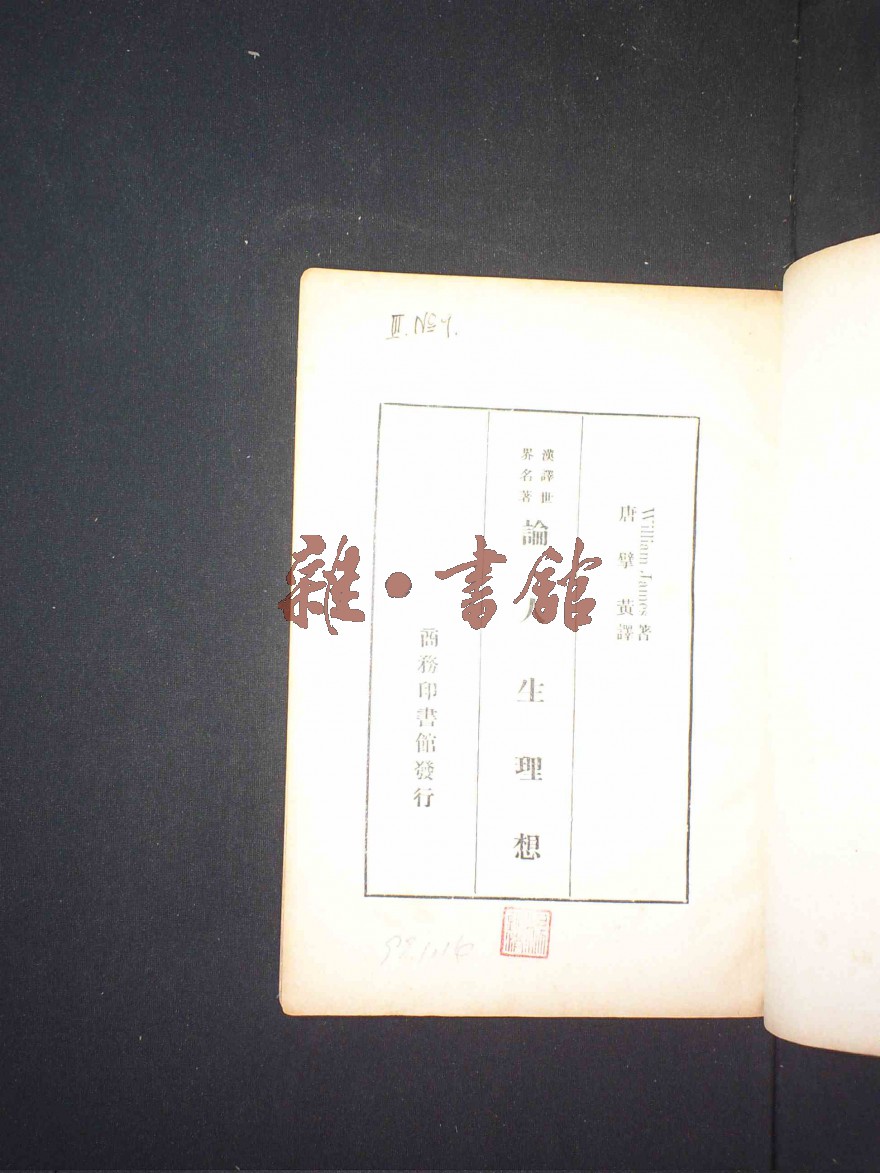 William James 著
唐擘黃譯
漢譯世
界名著
論人生理想
商務印書館發行
雜・書館